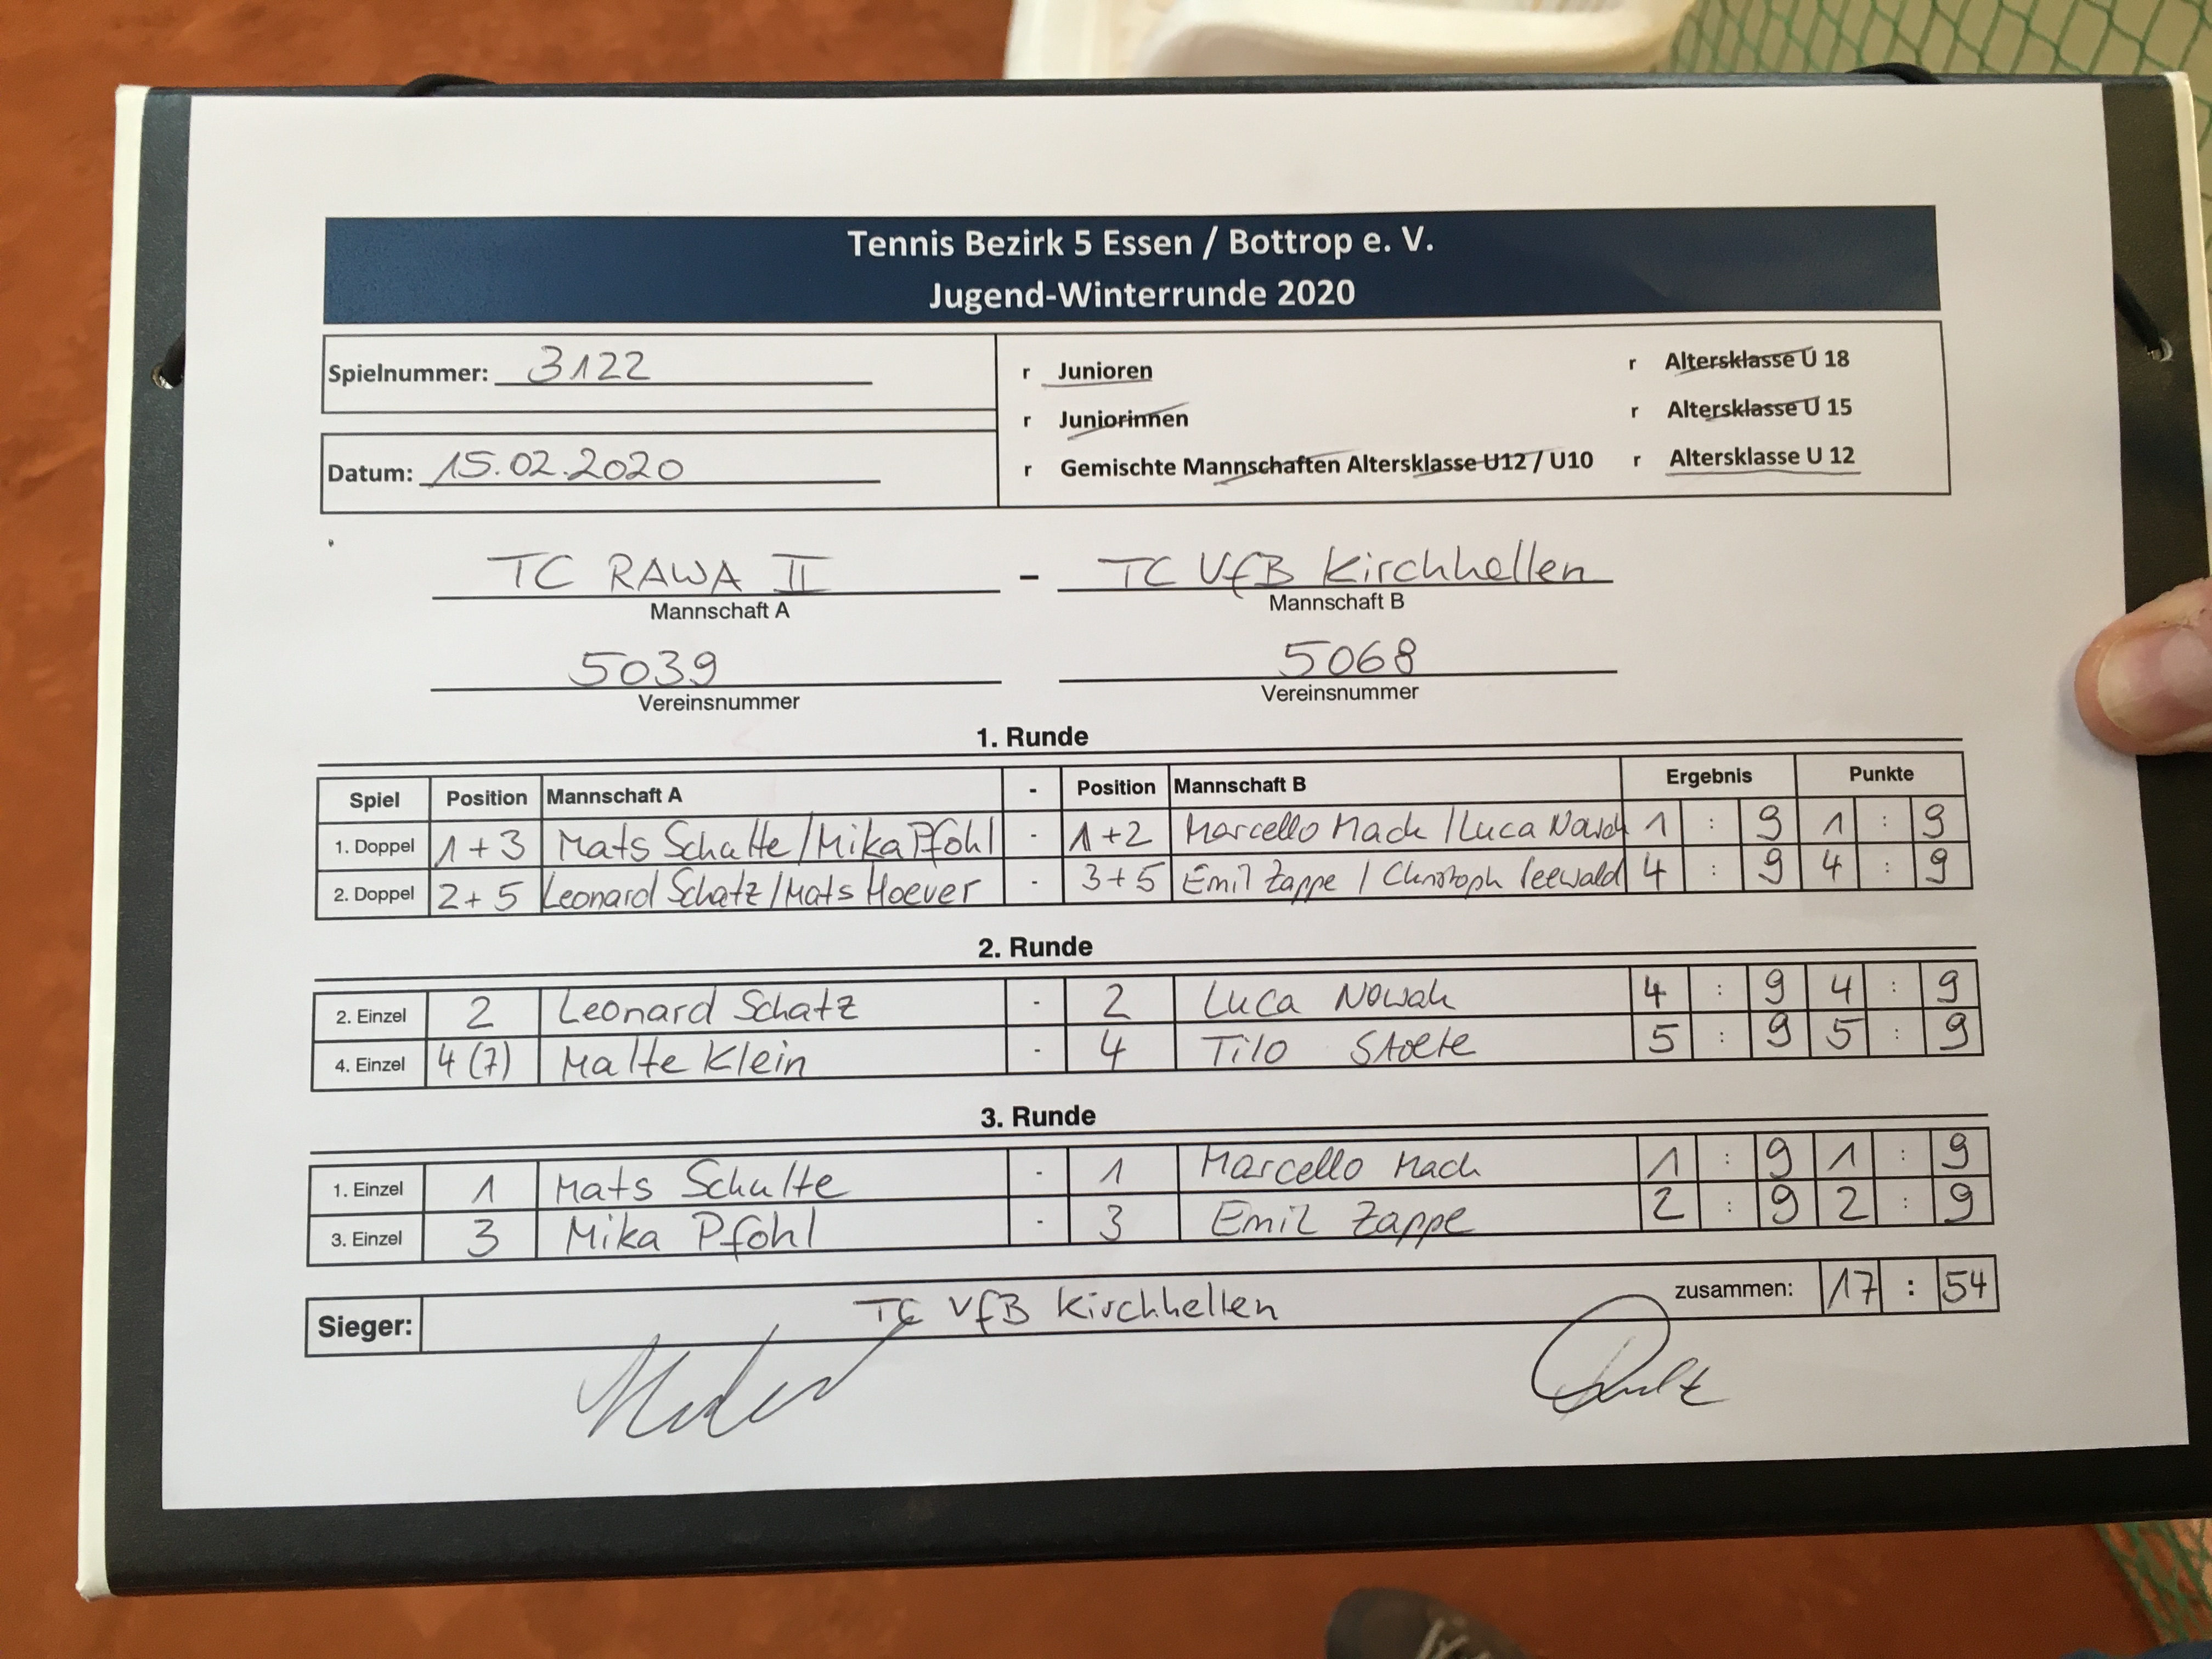 Tennis Bezirk 5 Essen / Bottrop e. V.
Jugend-Winterrunde 2020
Spielnummer: 3122
r Junioren r Altersklasse U 18
r Juniorinnen r Altersklasse U 15
Datum: 15.02.2020
r Gemischte Mannschaften Altersklasse U12 / U10 r Altersklasse U 12
TC RAWA II – TC VfB Kirchhellen
Mannschaft A Mannschaft B
5039 5068
Vereinsnummer Vereinsnummer
1. Runde
Spiel Position Mannschaft A - Position Mannschaft B Ergebnis Punkte
1. Doppel 1+3 Mats Schulte / Mika Pfohl - 1+2 Marcello Mach / Luca Nowak 1 : 9 1 : 9
2. Doppel 2+5 Leonard Schatz / Mats Hoever - 3+5 Emil Zappe / Christoph 4 : 9 4 : 9
2. Runde
2. Einzel 2 Leonard Schatz - 2 Luca Nowak 4 : 9 4 : 9
4. Einzel 4 (7) Malte Klein - 4 Tilo 5 : 9 5 : 9
3. Runde
1. Einzel 1 Mats Schulte - 1 Marcello Mach 1 : 9 1 : 9
3. Einzel 3 Mika Pfohl - 3 Emil Zappe 2 : 9 2 : 9
Sieger: TC VfB Kirchhellen zusammen: 17 : 54